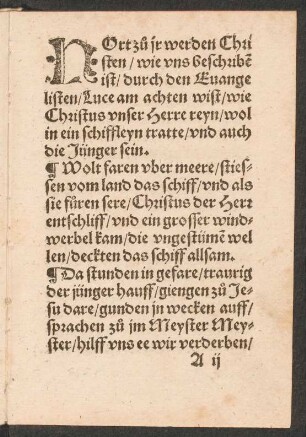 NOrtzů jr werden Chri
sten / wie vns beschribẽ
ist / durch den Euange
listen / Luce am achten wist / wie
Christus vnser Herre reyn / wol
in ein schiffleyn tratte / vnd auch
die Jünger sein.
¶ Wolt faren vber meere / sties-
sen vom land das schiff / vnd als
sie füren sere / Christus der Herr
entschlieff / vnd ein grosser wind-
werbel kam / die vngestümẽ wel
len / deckten das schiff allsam.
¶ Da stunden in gefare / traurig
der jünger hauff / giengen zů Je-
su dare / gunden jn wecken auff /
sprachen zů jm Meyster Mey-
ster / hilff vns ee wir verderben /
A ij